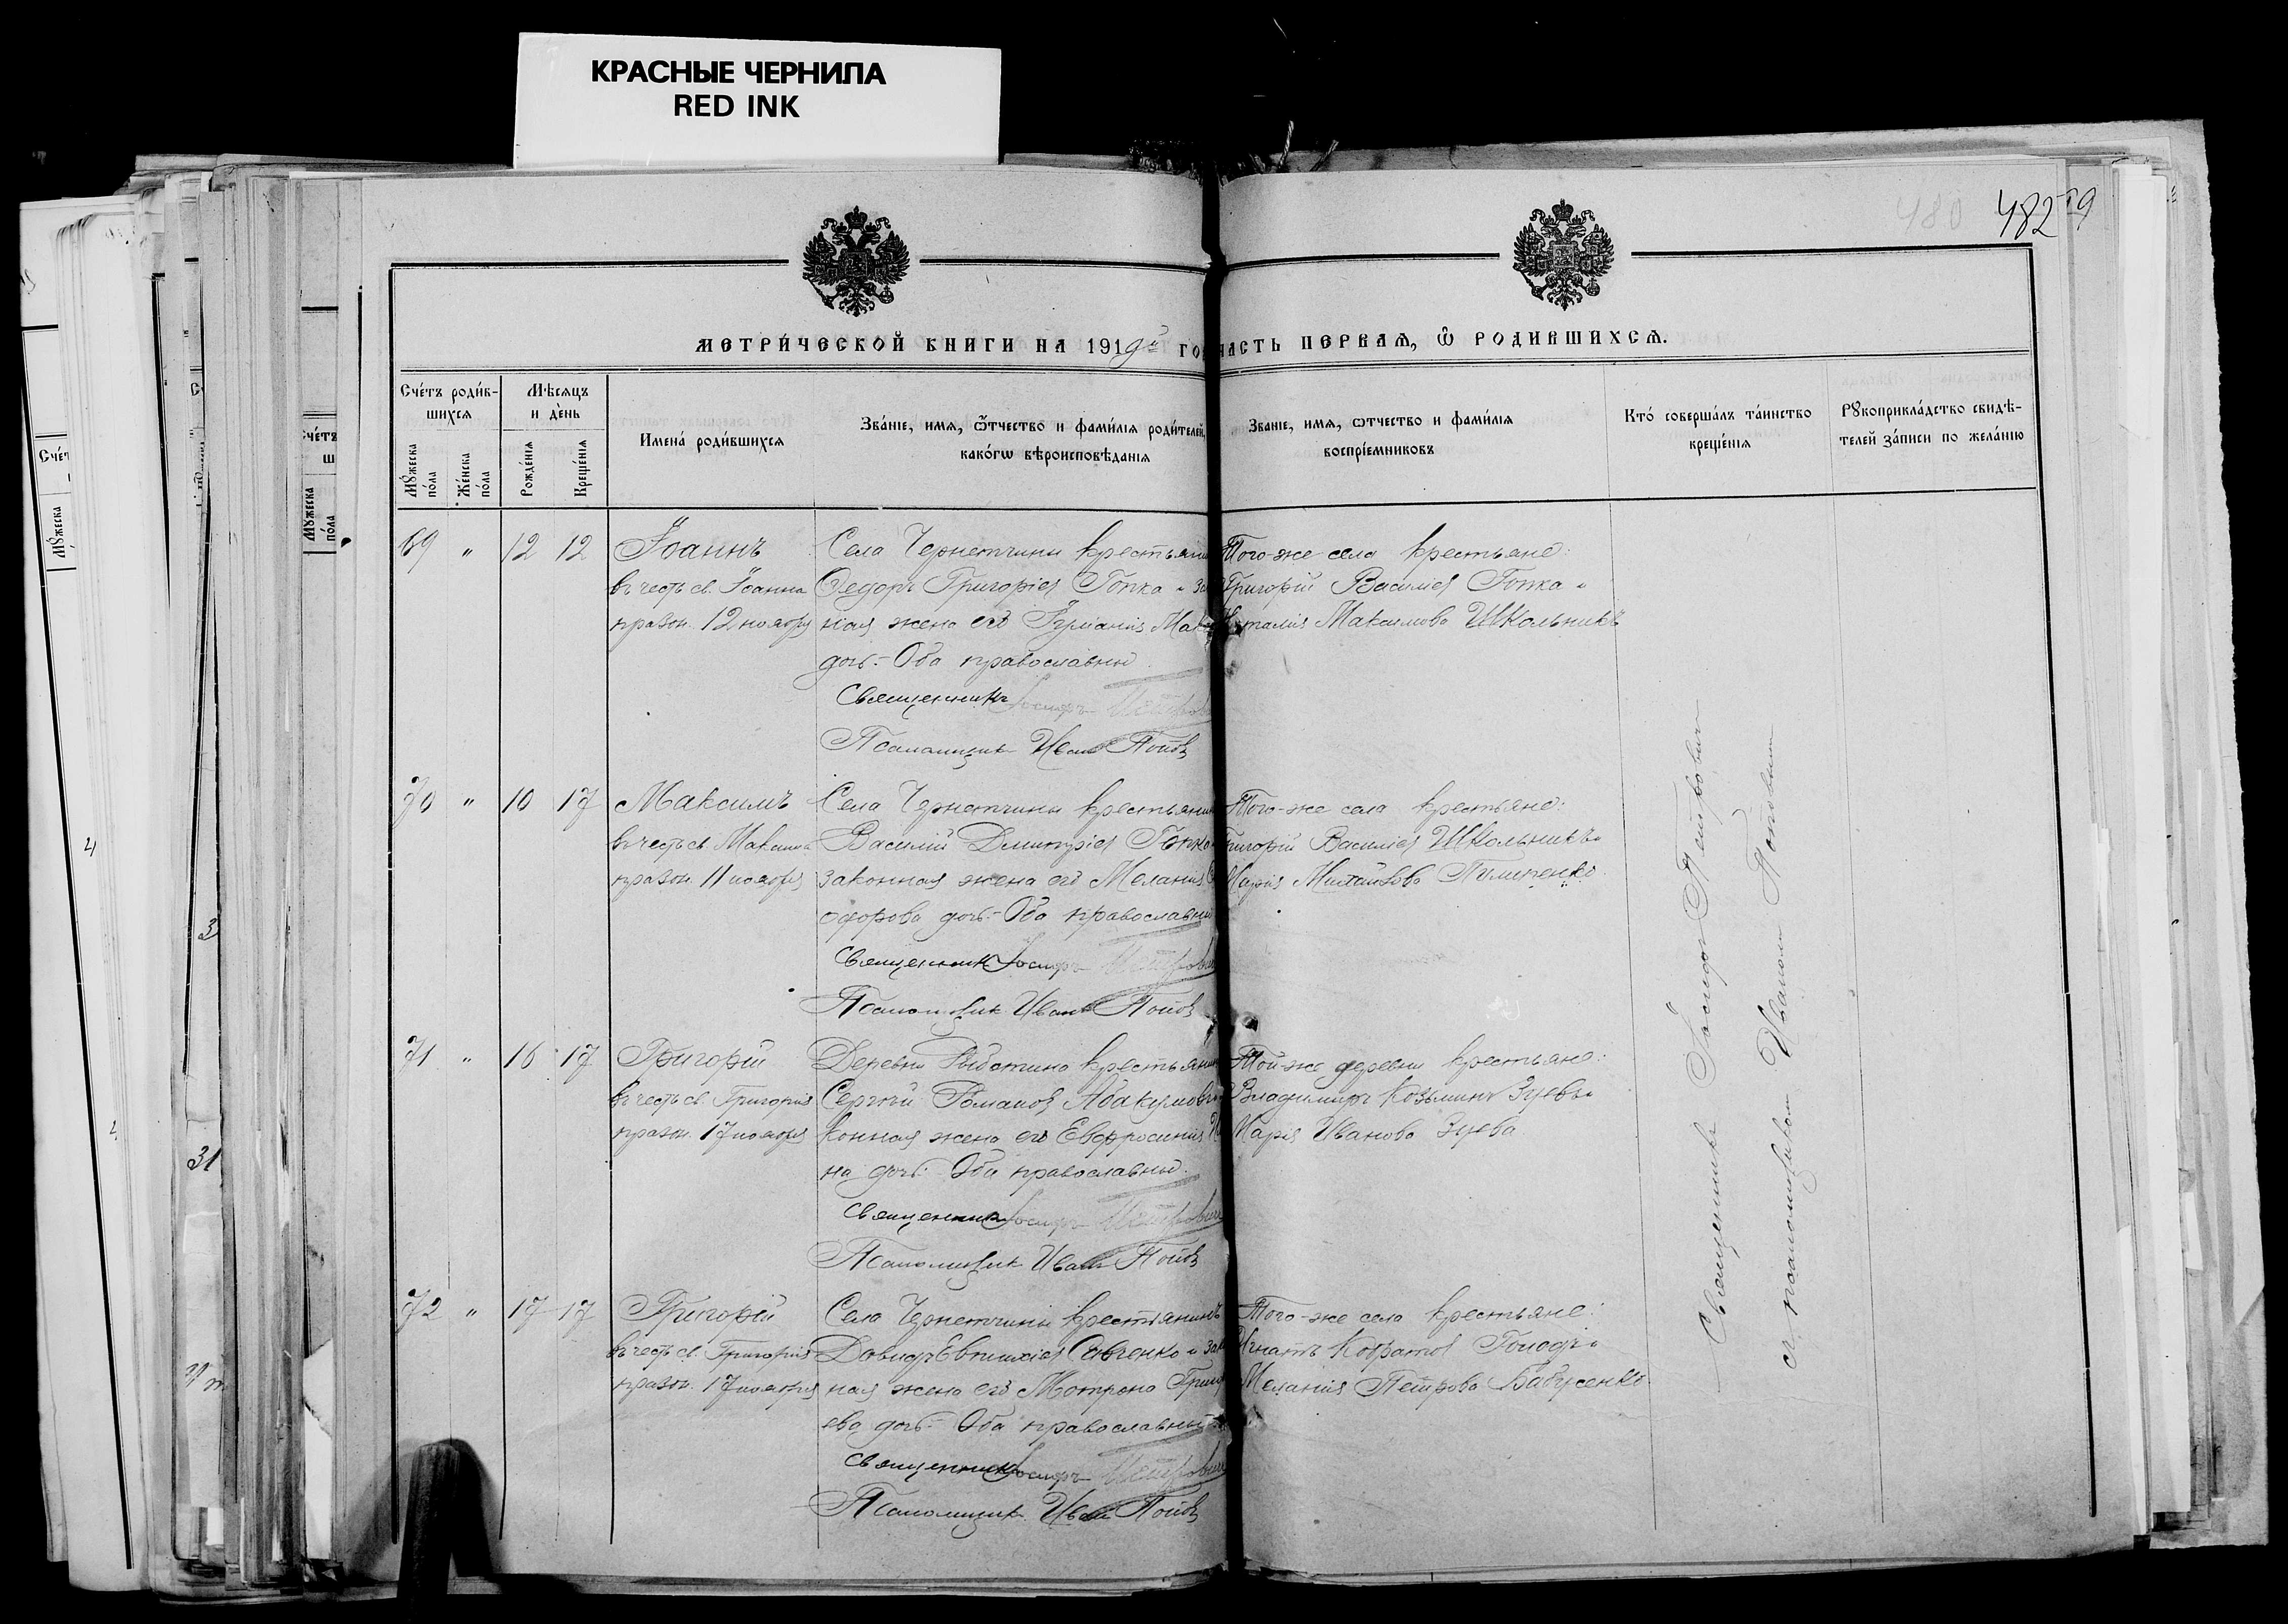 КРАСНЫЕ ЧЕРНИЛА
RED INK
480 482
МЕТРИ́ЧЕСКОЙ КНИГИ НА 1919й ГО ЧАСТЬ ПЕРВАЯ, Ѡ РОДИВШИХСЯ.
Сче́тъ роди́в-
шихся
Мѣсяцъ
и де́нь
Мꙋ́жеска
по́ла
Же́нска
по́ла
Рожде́нія
Креще́нія
Имена́ роди́вшихся
Зва́ніе, имя, ѻтчество и фами́лія роди́телей,
како́гѡ вѣроисповѣданія
Зва́ніе, имя, ѻтчество и фами́лія
воспріе́мниковъ
Кто́ соверша́лъ та́инство
креще́нія
Рꙋкоприкла́дство свидѣ-
телей за́писи по жела́нію
69 " 12 12
Іоаннъ
въ честь св. Іоанна
празн. 12 ноября
Села Чернетчины крестьянин
Ѳедоръ Григоріев Гопка и за
ная жена его
дочь.- Оба православны
Священникъ Іосифъ Петрови
Псаломщик Иван Попов
Того-же села крестьяне:
Григорій Васильев Гопка и
Наталія Максимова Школьникъ
70 " 10 17
Максимъ
въ честь св. Максима
празн. 11 ноября
Села Чернетчины крестьянин
Василій Димитріев Гопка
законная жена его Меланія
дочь.- Оба православны
Священник Іосифъ Петрович
Псаломщик Иван Попов
Того-же села крестьяне:
Григорій Васильев Школьникъ и
Марія Михайлова Пилипенко
71 " 16 17
Григорій
въ честь св. Григорія
празн. 17 ноября
Деревни крестьянин
Сергѣй Романов Абакумов
конная жена его Евфросинія
на дочь. Оба православны.
Священник Іосифъ Петрович
Псаломщик Иван Попов
Той-же деревни крестьяне:
Владимиръ Козьмин Зуевъ и
Марія Иванова Зуева
72 " 17 17
Григорій
въ честь св. Григорія
празн. 17 ноября
Села Чернетчины крестьянинъ
Давидъ Евтихіев Савченко и зак
ная жена его Мотрона Григор
ева дочь.- Оба православны
Священник Іосифъ Петрович
Псаломщик Иван Попов
Того-же села крестьяне:
Игнатъ
Меланія Петрова Бабусенко
Священникъ Іосифъ Петрович
съ псаломщиком Иваном Поповым